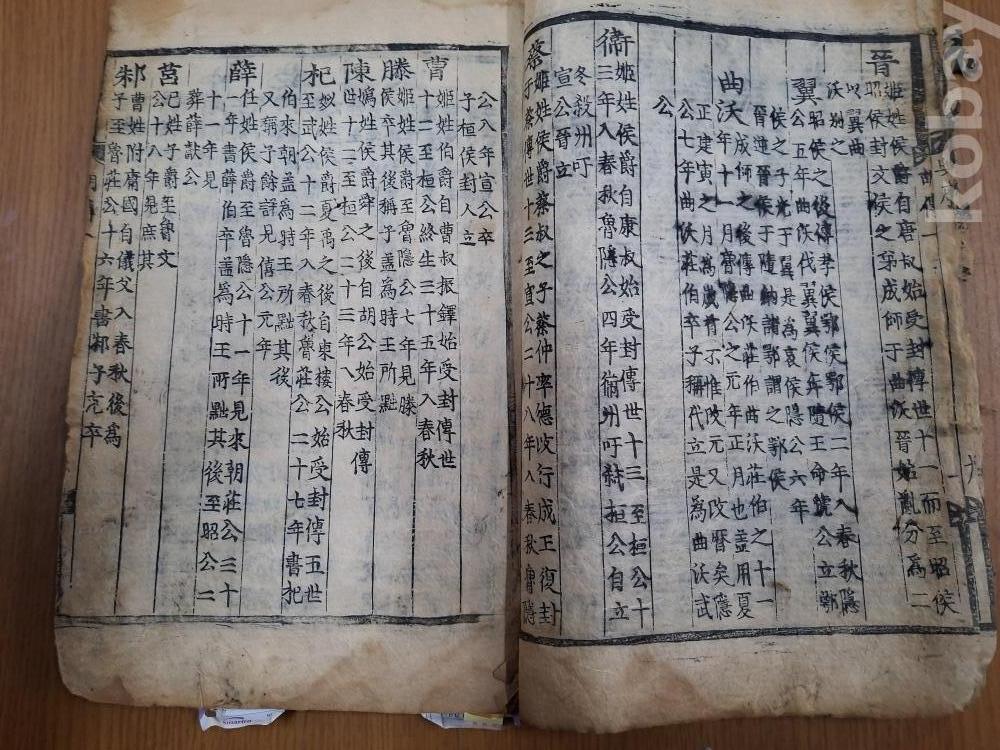 晉姬姓侯爵自唐叔始受封傳世十一而至昭侯
昭侯封文侯之弟成師于曲沃晉始亂分為二
以翼曲
沃別之
翼昭侯之後傳孝侯鄂侯鄂侯二年入春秋隱
公五年曲沃伐翼翼侯奔隨王命虢公立鄂
侯之子光于翼是為哀侯隱公六年
晉逆晉侯于隨納諸鄂謂之鄂侯
曲沃成師之後傳曲沃莊伯曲沃莊伯之十一
年十一月魯隱公之元年正月也蓋用夏
正建寅之月為歲首不惟改元又改曆矣隱
公七年曲沃莊伯卒子稱代立是為曲沃武
公
衛姬姓侯爵自康叔始受封傳世十三至桓公十
三年入春秋魯隱公四年衛州吁弒桓公自立
冬殺州吁
宣公晉立
蔡姬姓侯爵蔡叔之子蔡仲率德改行成王復封
于蔡傳世十三至宣公二十八年入春秋魯隱
公八年宣公卒
子桓侯封人立
曹姬姓伯爵自曹叔振鐸始受封傳世
十二至桓公終生三十五年入春秋
滕姬姓侯爵至魯隱公七年見滕
侯卒其後稱子蓋為時王所黜
陳媯姓侯爵舜之後自胡公始受封傳
世十二至桓公二十三年入春秋
杞姒姓侯爵夏禹之後自東樓公始受封傳五世
至武公十二年入春秋魯莊公二十七年書杞
伯來朝蓋為時王所黜其後
又稱子餘詳見僖公元年
薛任姓侯爵魯隱公十一年見來朝莊公三十
一年書薛伯卒蓋為時王所黜其後至昭公二
十一年見
葬薛獻公
莒己姓子爵至魯文
公十八年見庶其
邾曹姓附庸國自儀父入春秋後為
子至魯莊公十六年書邾子克卒
kobay